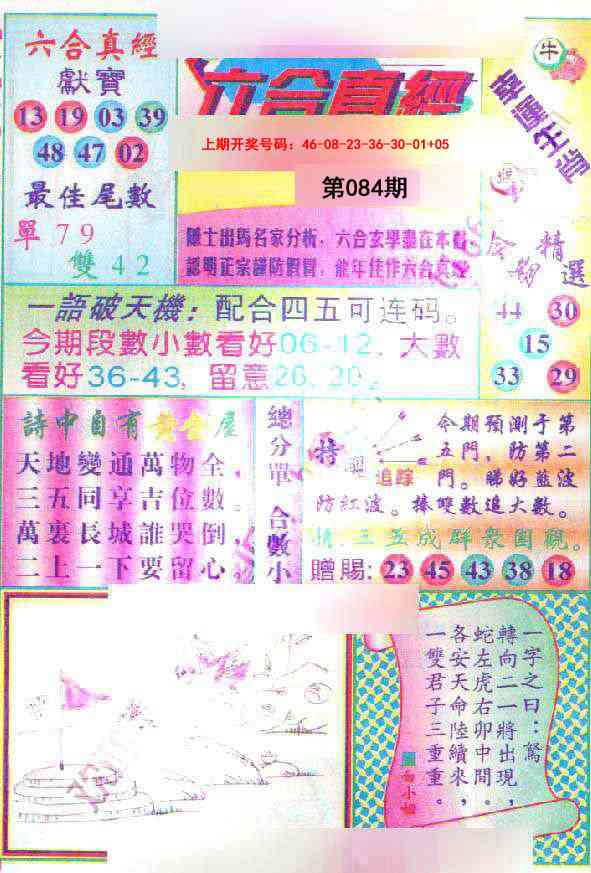 六合真經
獻寶
13 19 03 39
48 47 02
最佳尾數
單 79
雙 42
六合真經
上期开奖号码：46-08-23-36-30-01+05
第084期
隱士出馬名家分析，六合玄學盡在本
認明正宗謹防假冒，能年佳作六合真經
牛
精選
44 30
15
33 29
一語破天機：配合四五可连码。
今期段數小數看好06-12，大數
看好36-43，留意26，20。
詩中自有黃金屋
天地變通萬物全，
三五同享吉位數。
萬裏長城誰哭倒，
二上一下要留心。
總分單
合數小
特
追踪
今期預測于第
五門，防第二
門。睇好藍波
防紅波。捧雙數追大數。
三五成群眾圍觀。
贈賜：23 45 43 38 18
一字之曰：駑
轉向二一將出現，
蛇左虎右卯中間。
各安天命陸續來，
一雙君子三重重。